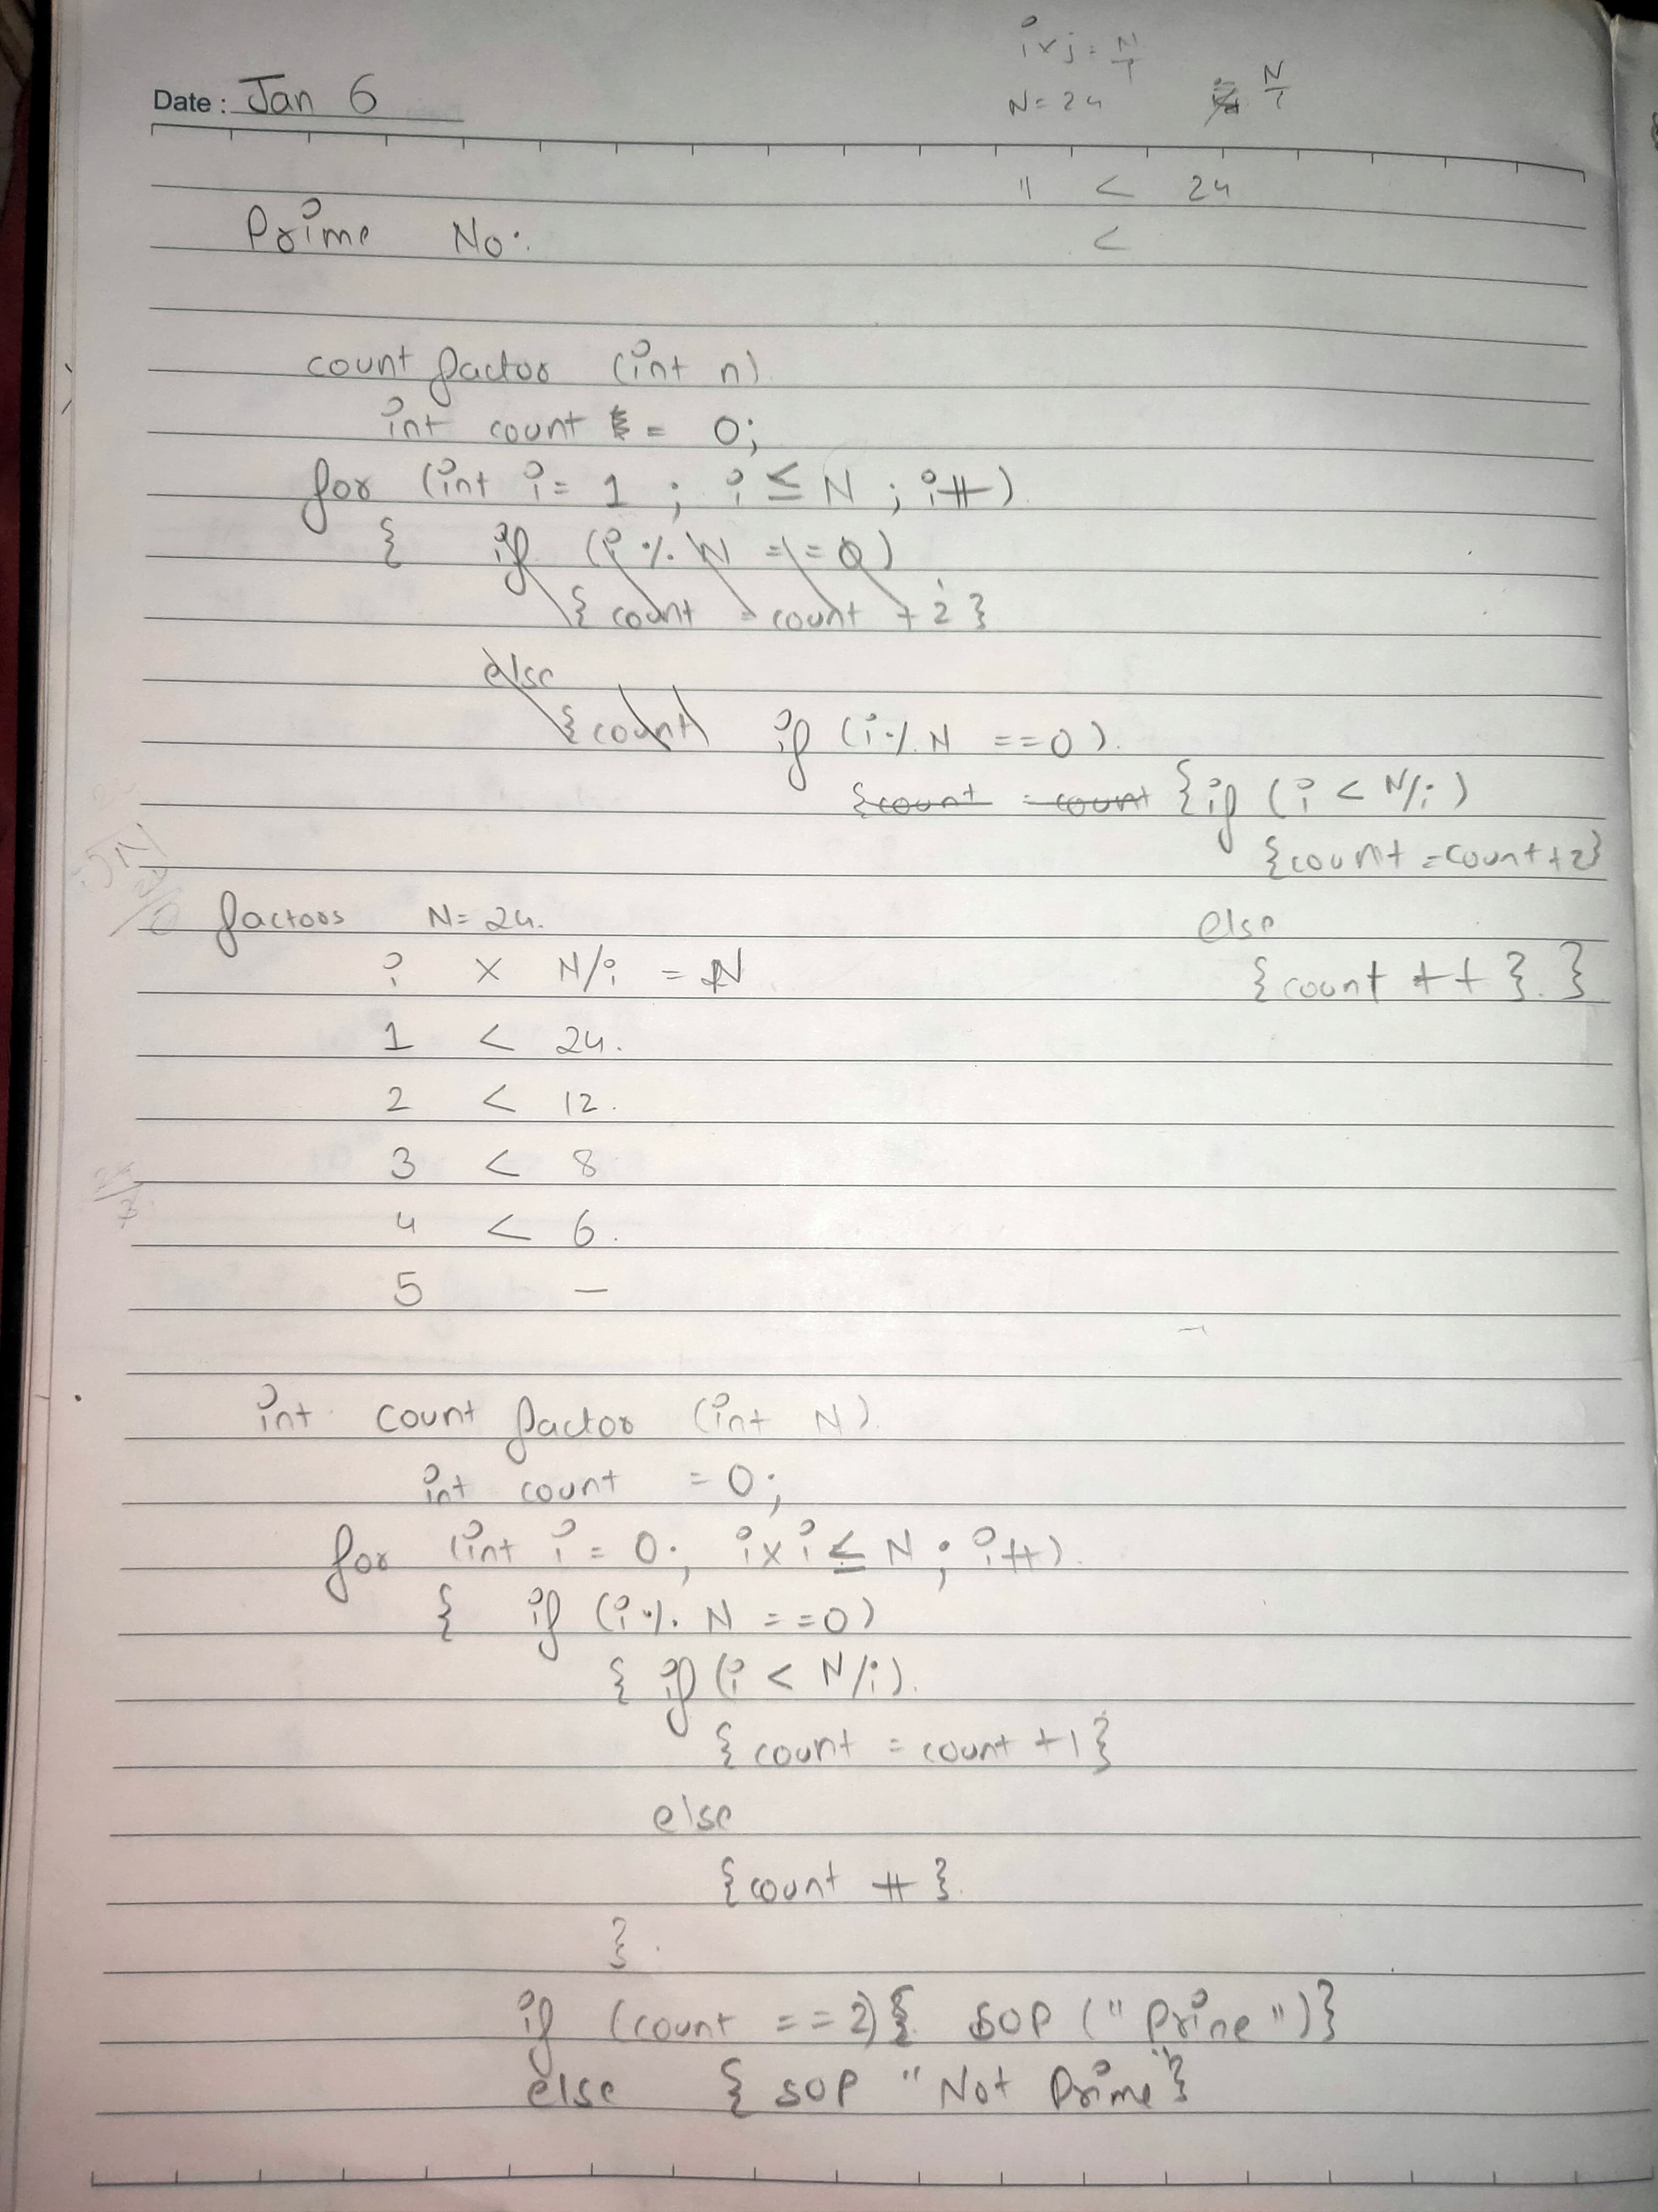 i x j = N/i
Date : Jan 6
N = 24
N/i
11 < 24
Prime No.
<
count factor (int n)
int count = 0;
for (int i = 1 ; i ≤ N ; i++)
{ if (i % N == 0)
{ count = count + 2 }
else
{ count if (i % N == 0).
{count = count { if (i < N/i)
{count = count + 2}
factors N = 24.
else
i x N/i = N
{ count ++ } . }
1 < 24.
2 < 12.
3 < 8
4 < 6.
5 —
int count factor (int N).
int count = 0;
for (int i = 0; i x i ≤ N ; i++).
{ if (i % N == 0)
{ if (i < N/i).
{ count = count + 1 }
else
{ count ++ }.
} .
if (count == 2) { SOP ("Prine")}
else { SOP "Not Prime"}